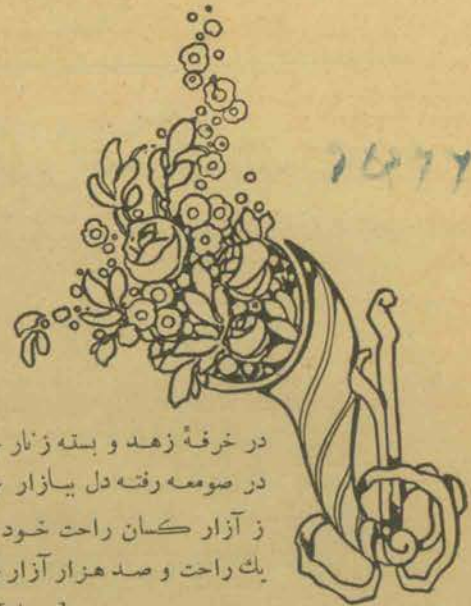 در خرقهٔ زهد و بسته زنار
در صومعه رفته دل ببازار
ز آزار کسان راحت خود
یك راحت و صد هزار آزار